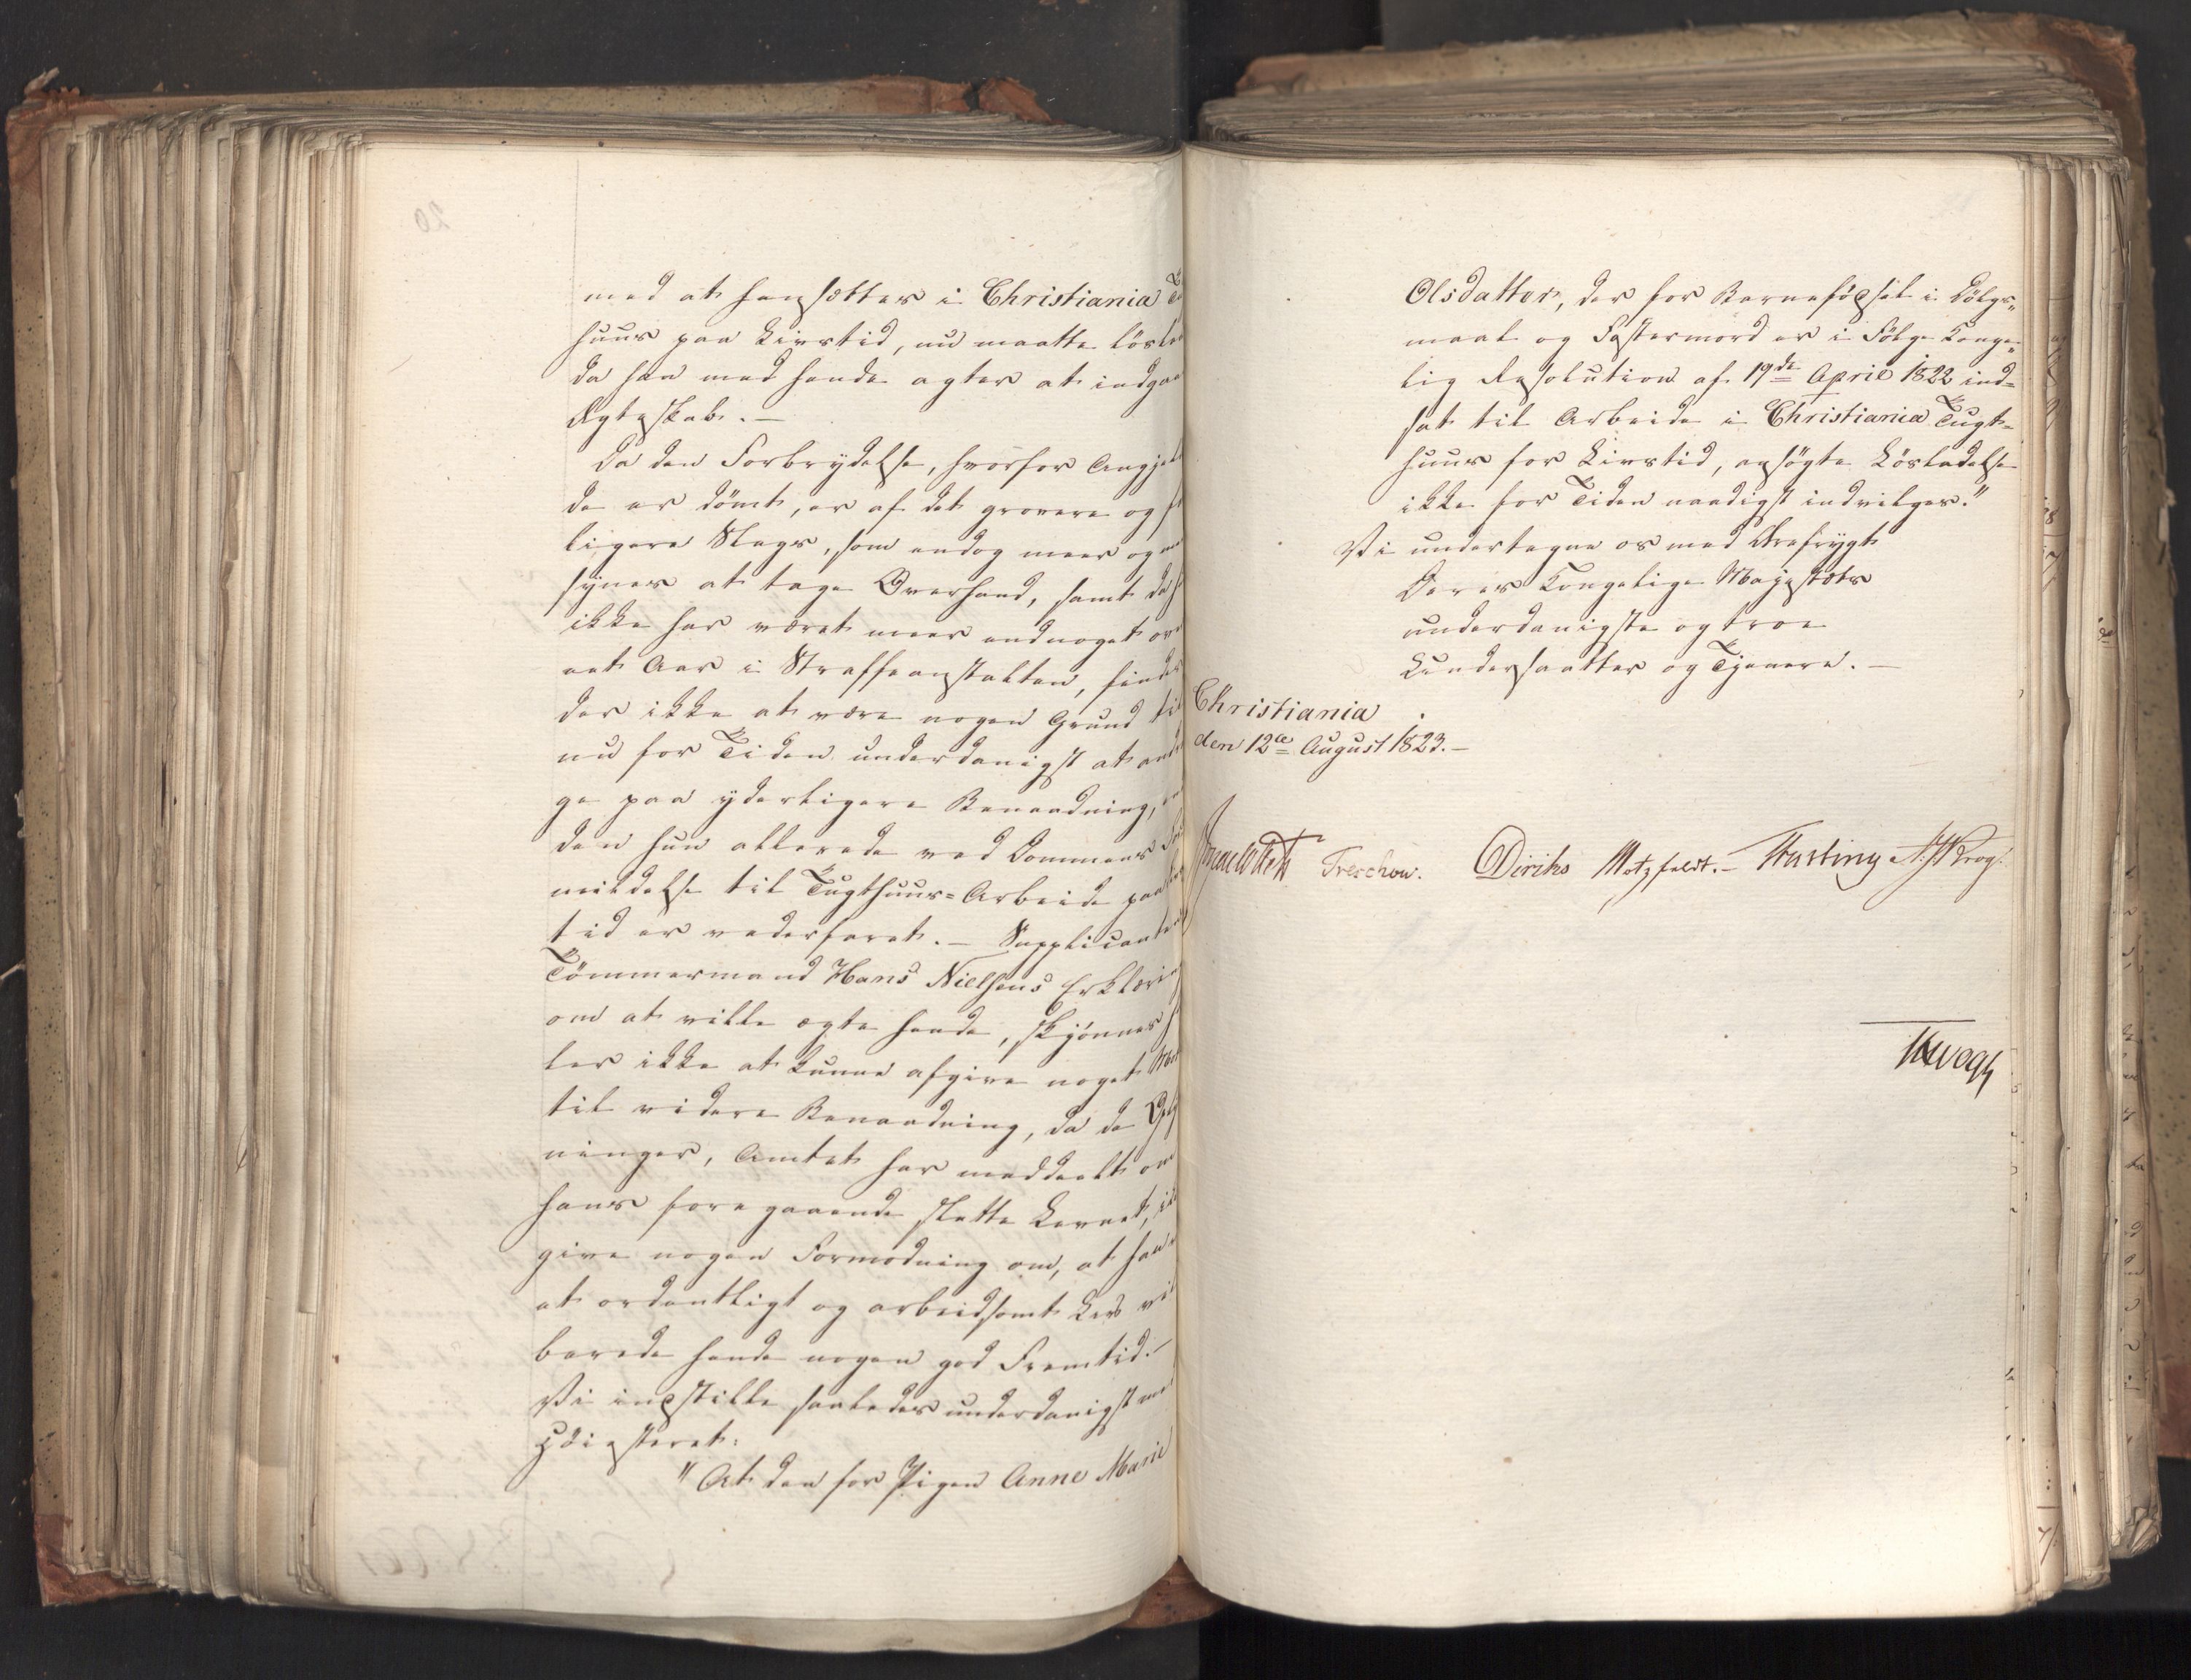 med at hensættes i Christiania
huus paa Livstid, nu maatte löslad
da han med hende agter at indgaae
Ægteskab. —
Da den Forbrydelse, hvorfor Angjel
de er dömt, er af det grovere og
ligere Slags, som endog meer og
synes at tage Overhaand, samt da
ikke har været meer end noget over
eet Aar i Straffeanstalten, findes
der ikke at være nogen Grund til
nu for Tiden underdanigst at andr
ge paa yderligere Benaadning,
den hun allerede ved Dommens For
mildelse til Tugthuus=Arbeide paa Livs
tid er vederfaret. — Supplicanten
Tömmermand Hans Nielsens Erklæring
om at ville ægte hende, skjönnes
ler ikke at kunne afgive noget Mo
til videre Benaadning, da de Op
ninger, Amtet har meddeelt om
hans foregaaende slette Levnet, ik
give nogen Formodning om, at han
et ordentligt og arbeidsomt Lev vil
berede hende nogen god Fremtid. —
Vi indstille saaledes underdanigst med
Justisteret:
"At den for Pigen Anne Marie
Olsdatter, der for Barneföpsel i Dölgs"
maal og Fostermord er i Fölge Konge"
lig Resolution af 19de April 1822 ind=
sat til Arbeide i Christiania Tugt=
huus for Livstid, ansögte Lösladelse
ikke for Tiden naadigst indvilges."
Vi undertegne os med Ærefrygt
Deres Kongelige Majestæts
underdanigste og troe
Undersaatter og Tjenere. —
Christiania
den 12te August 1823. —
Treschow. Diriks Motzfeldt. — Fasting